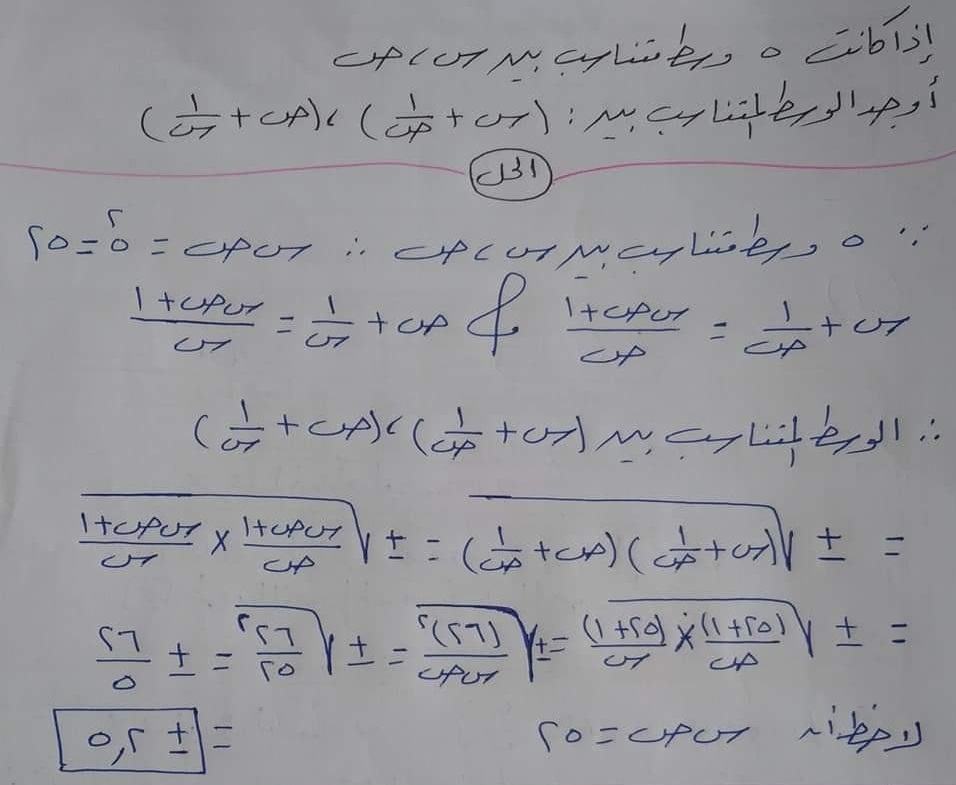 إذا كانت ٥ وسط متناسب بين س ، ص
أوجد الوسط المتناسب بين : (س + ١/ص) ، (ص + ١/س)
الحل
∵ ٥ وسط متناسب بين س ، ص ∴ س ص = ٥² = ٢٥
س + ١/ص = (س ص + ١)/ص & ص + ١/س = (س ص + ١)/س
∴ الوسط المتناسب بين (س + ١/ص) ، (ص + ١/س)
= ± √((س + ١/ص) (ص + ١/ص)) = ± √((س ص + ١)/ص × (س ص + ١)/س)
= ± √((٢٥ + ١)/ص × (٢٥ + ١)/س) = ± √((٢٦)²/س ص) = ± √(٢٦²/٢٥) = ± ٢٦/٥
لاحظ أنه س ص = ٢٥ = ± ٥,٢